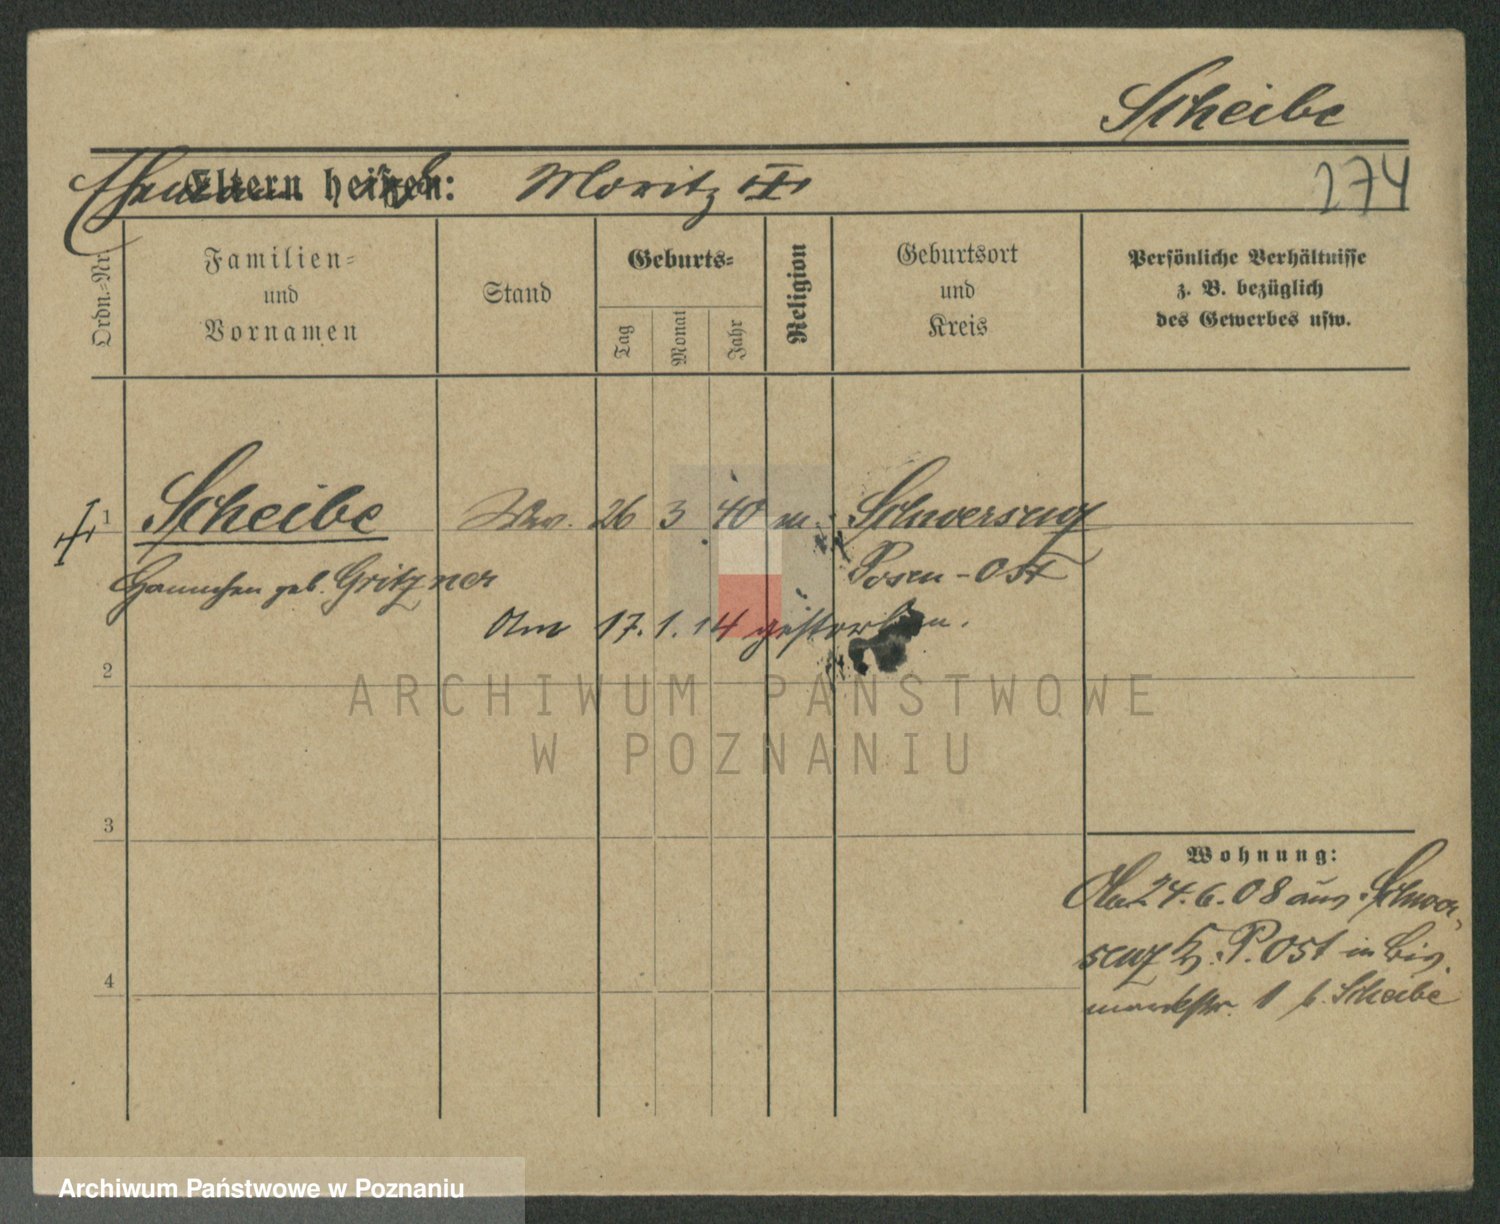 Scheibe
Eltern heißen: Moritz III
274
Ordn.-Nr.
Familien-
und
Vornamen
Stand
Geburts-
Tag
Monat
Jahr
Religion
Geburtsort
und
Kreis
Persönliche Verhältnisse
z. B. bezüglich
des Gewerbes usw.
1 Scheibe Ww. 26 3 40 m. Schwersenz
Hannchen geb. Gritzner Posen-Ost
Am 17.1.14 gestorben.
2
ARCHIWUM PAŃSTWOWE
W POZNANIU
3
Wohnung:
24.6.08 aus Schwer-
senz Kr. P. Ost in Bis-
marckstr. 1 b. Scheibe
4
Archiwum Państwowe w Poznaniu